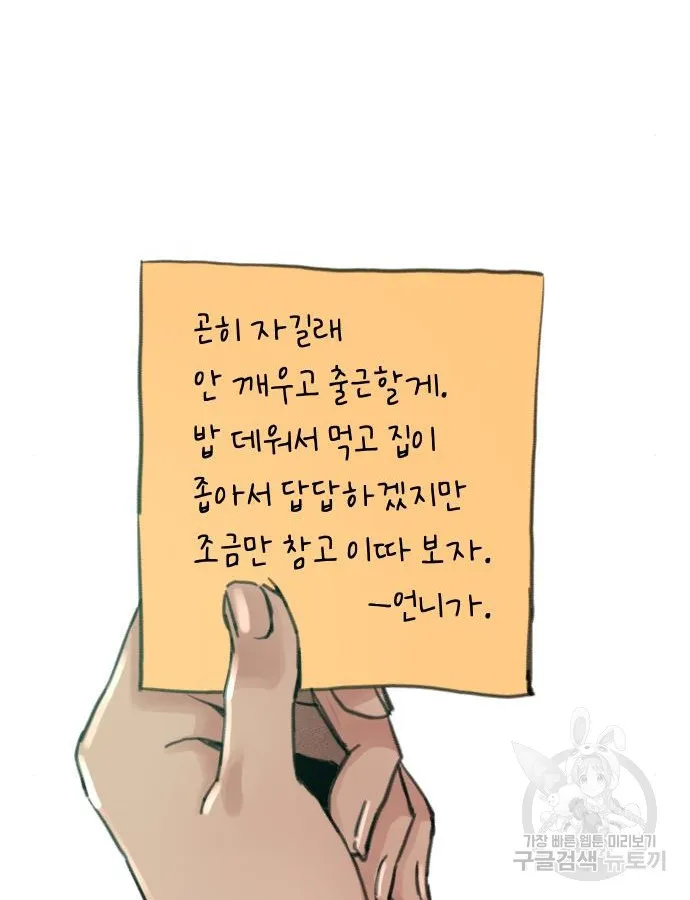 곤히 자길래
안 깨우고 출근할게.
밥 데워서 먹고 집이
좁아서 답답하겠지만
조금만 참고 이따 보자.
-언니가.
가장 빠른 웹툰 미리보기
구글검색 뉴토끼